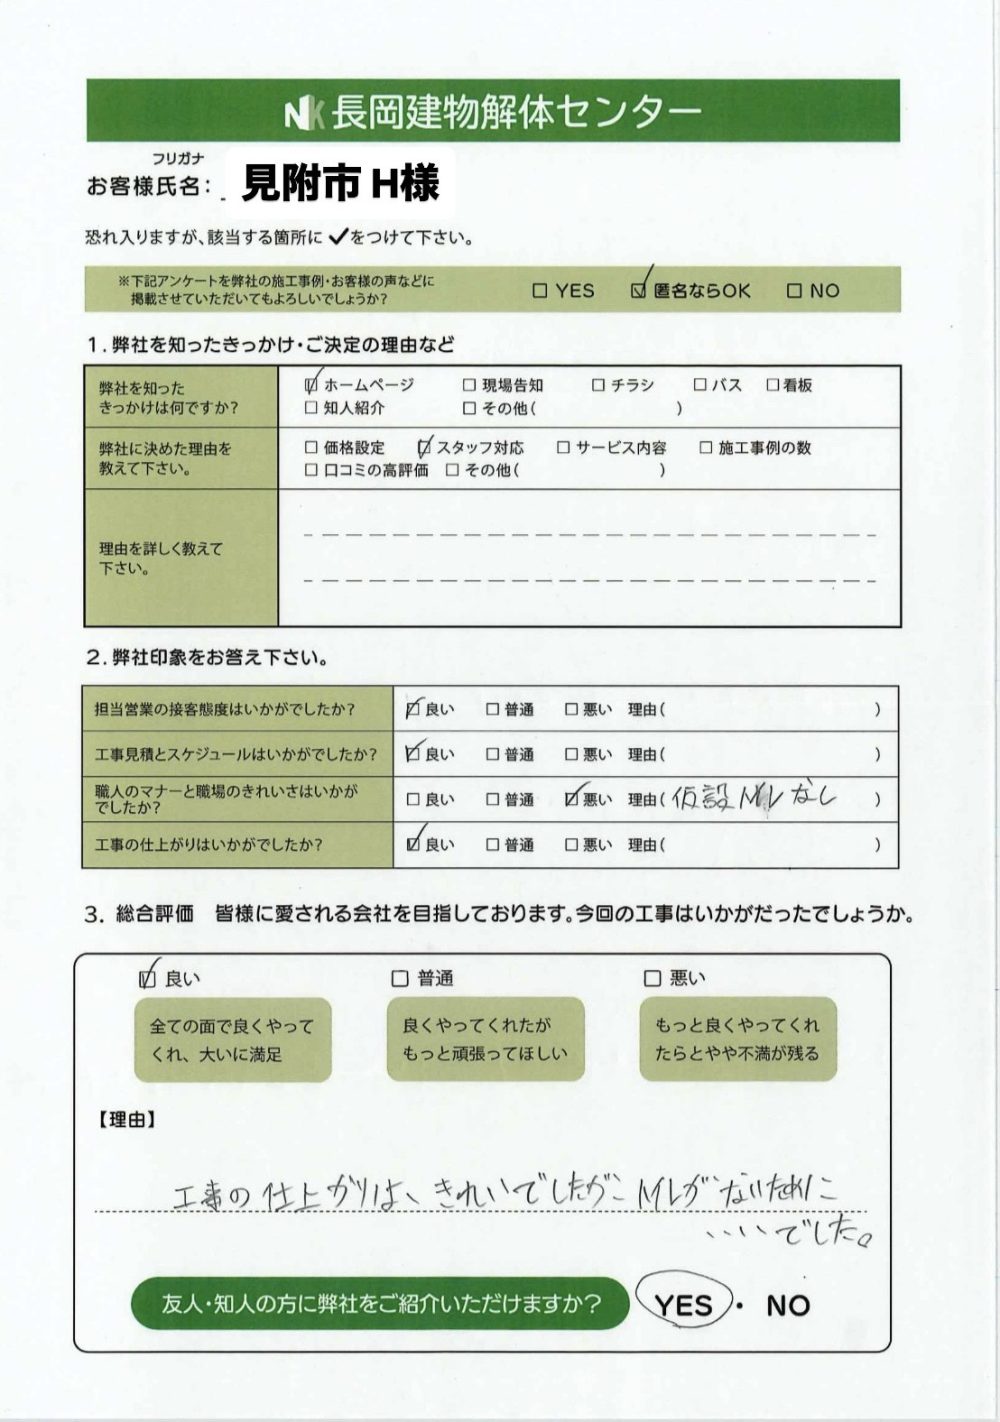 NK 長岡建物解体センター
フリガナ
お客様氏名: 見附市 H様
恐れ入りますが、該当する箇所に✓をつけて下さい。
※下記アンケートを弊社の施工事例・お客様の声などに
掲載させていただいてもよろしいでしょうか?
□ YES ☑ 匿名ならOK □ NO
1.弊社を知ったきっかけ・ご決定の理由など
弊社を知った
きっかけは何ですか?
☑ ホームページ □ 現場告知 □ チラシ □ バス □ 看板
□ 知人紹介 □ その他( )
弊社に決めた理由を
教えて下さい。
□ 価格設定 ☑ スタッフ対応 □ サービス内容 □ 施工事例の数
□ 口コミの高評価 □ その他( )
理由を詳しく教えて
下さい。
2.弊社印象をお答え下さい。
担当営業の接客態度はいかがでしたか? ☑ 良い □ 普通 □ 悪い 理由( )
工事見積とスケジュールはいかがでしたか? ☑ 良い □ 普通 □ 悪い 理由( )
職人のマナーと職場のきれいさはいかが
でしたか?
□ 良い □ 普通 ☑ 悪い 理由( 仮設トイレなし )
工事の仕上がりはいかがでしたか? ☑ 良い □ 普通 □ 悪い 理由( )
3. 総合評価 皆様に愛される会社を目指しております。今回の工事はいかがだったでしょうか。
☑ 良い □ 普通 □ 悪い
全ての面で良くやって
くれ、大いに満足
良くやってくれたが
もっと頑張ってほしい
もっと良くやってくれ
たらとやや不満が残る
【理由】
工事の仕上がりは、きれいでしたが、トイレがないために
‥‥でした。
友人・知人の方に弊社をご紹介いただけますか? YES ・ NO